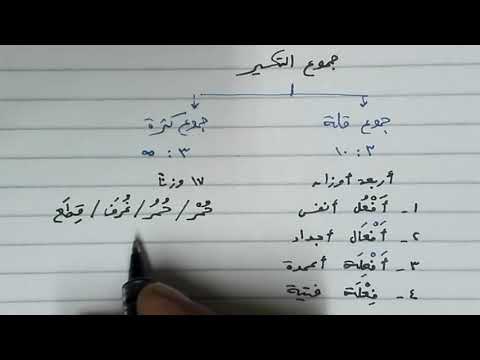 جموع التكسير
جموع قلة
جموع كثرة
٣ : ١٠
٣ : ∞
أربعة أوزان
١٧ وزنًا
١- أَفْعُل أنفس
حُمْر / حُمُر / غُرَف / قِطَع
٢- أَفْعَال أجداد
٣- أَفْعِلَة أعمدة
٤- فِعْلَة فتية